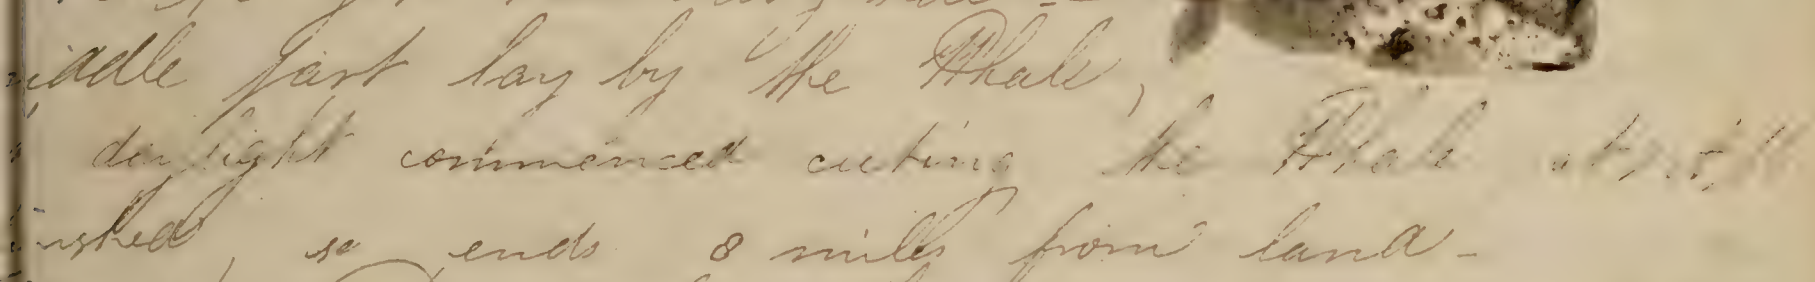 iddle part lay by the Whale,
daylight commenced cuting the Whale at
inished, so ends 8 miles from land -